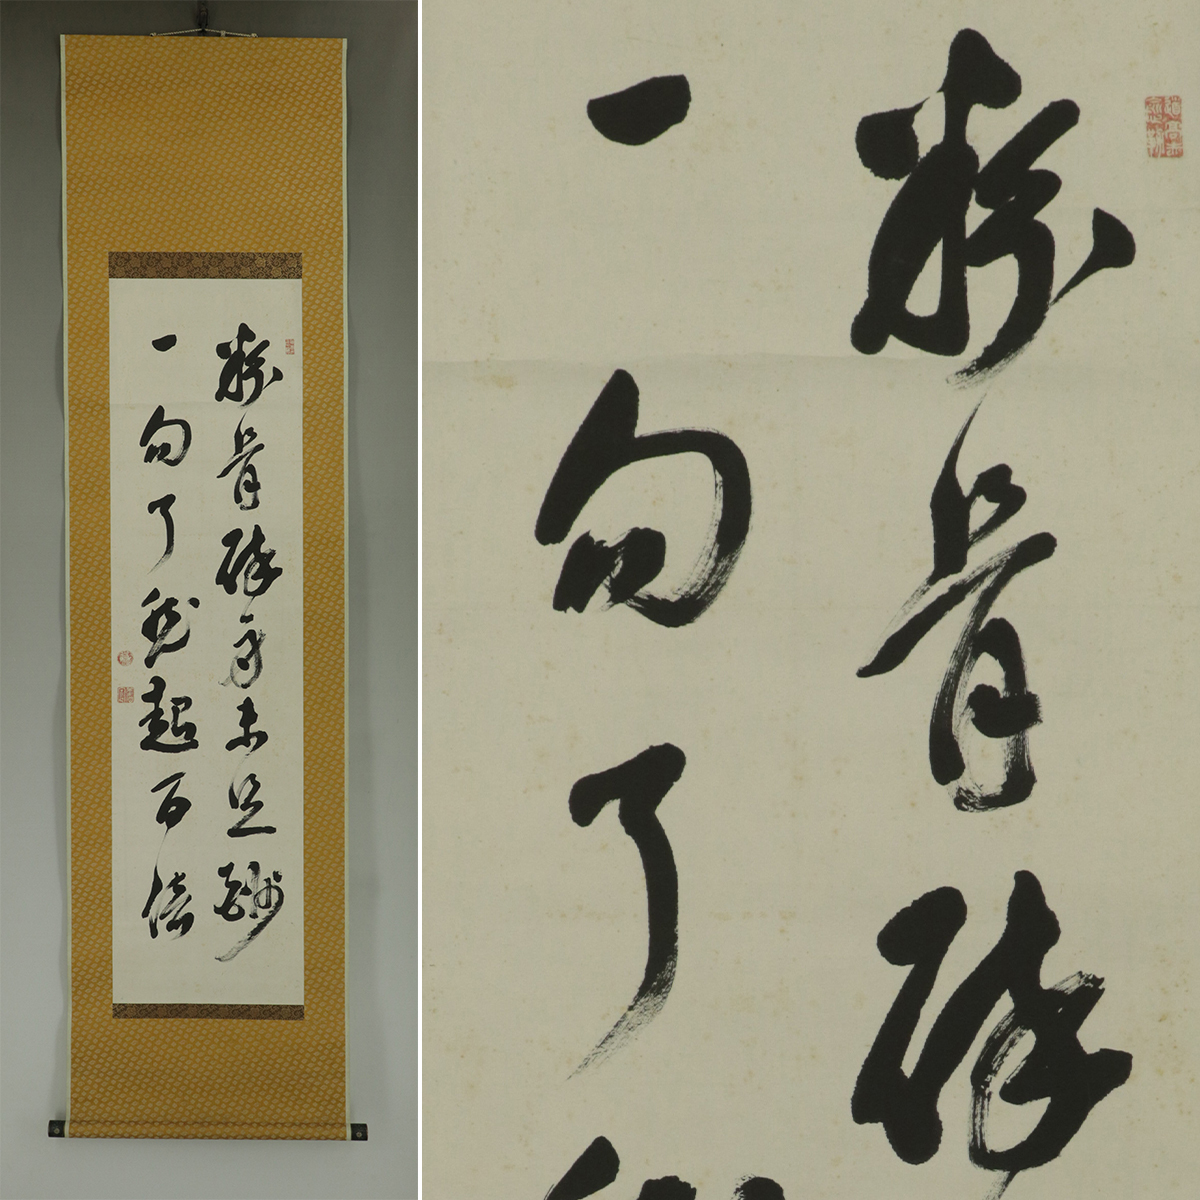 粉骨砕身未足酬
一句了然超百億